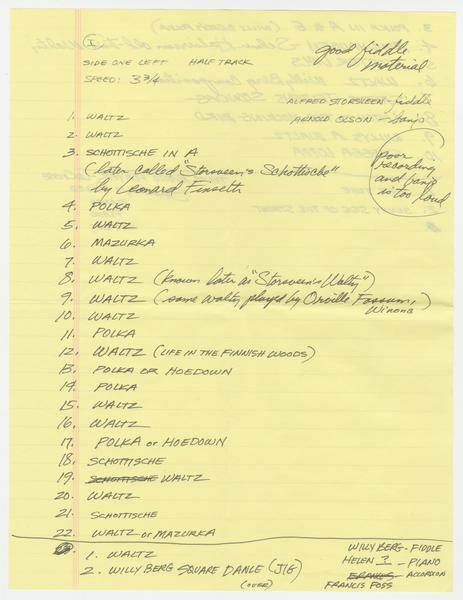 I
good fiddle
material
SIDE ONE LEFT HALF TRACK
SPEED: 3 3/4
ALFRED STORSVEEN - fiddle
ARNOLD OLSON - banjo
1. WALTZ
2. WALTZ
3. SCHOTTISCHE IN A
(later called "Storsveen's Schottische"
by Leonard Finseth
poor
recording
and banjo
is too loud
4. POLKA
5. WALTZ
6. MAZURKA
7. WALTZ
8. WALTZ (known later as "Storsveen's Waltz")
9. WALTZ (same waltz played by Orville Fossum,
WINONA
10. WALTZ
11. POLKA
12. WALTZ (LIFE IN THE FINNISH WOODS)
13. POLKA OR HOEDOWN
14. POLKA
15. WALTZ
16. WALTZ
17. POLKA or HOEDOWN
18. SCHOTTISCHE
19. SCHOTTISCHE WALTZ
20. WALTZ
21. SCHOTTISCHE
22. WALTZ or MAZURKA
1. WALTZ
2. WILLY BERG SQUARE DANCE (JIG)
(OVER)
WILLY BERG - FIDDLE
HELEN ? - PIANO
ACCORDION
FRANCIS FOSS